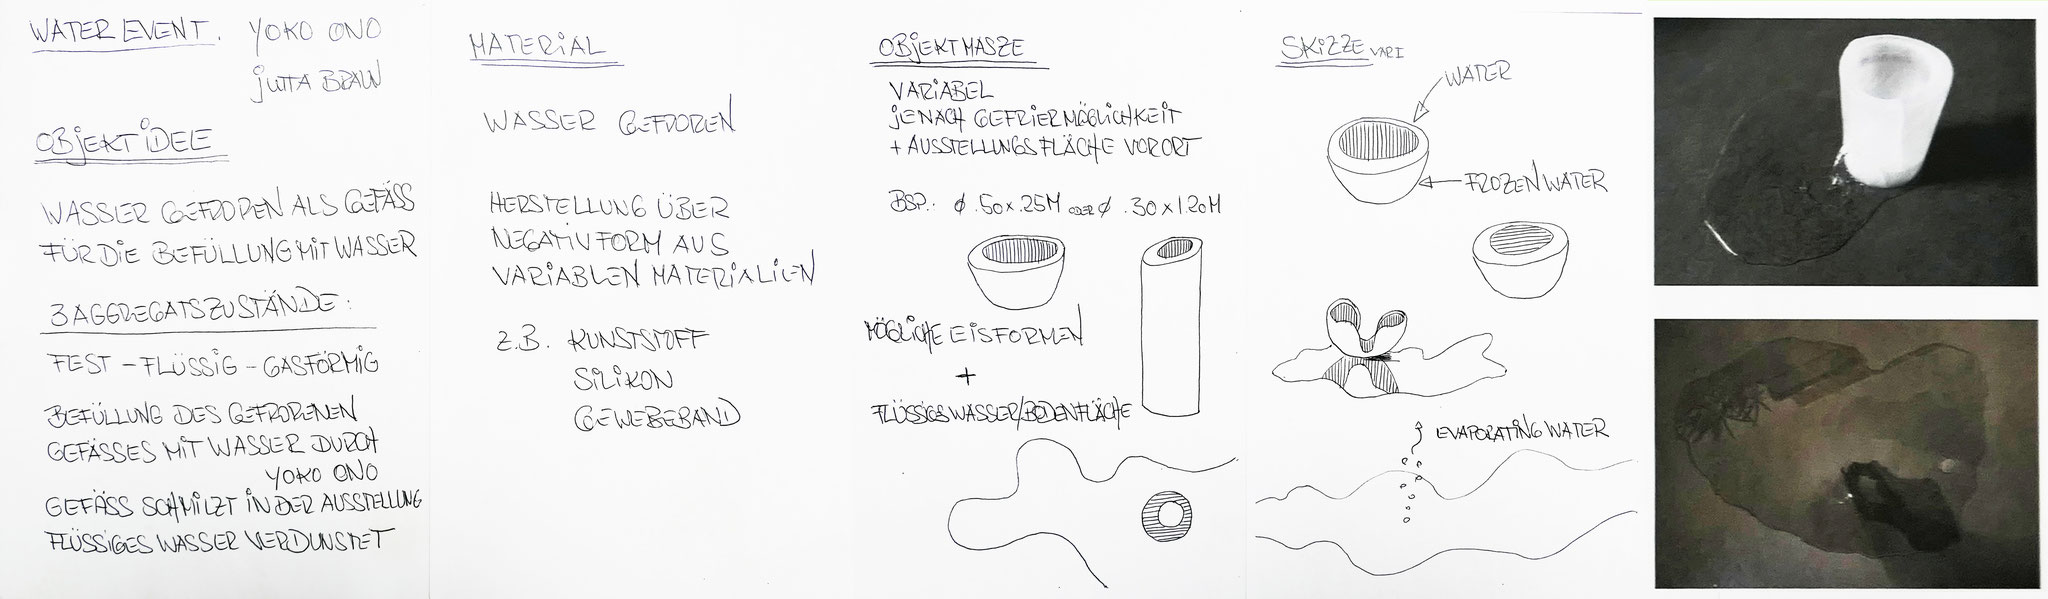 WATER EVENT. YOKO ONO
jUTTA BRAUN
OBjEKT iDEE
WASSER GEFROREN ALS GEFÄSS
FÜR DiE BEFÜLLUNG MiT WASSER
3 AGGREGATSZUSTÄNDE:
FEST – FLÜSSiG – GASFÖRMiG
BEFÜLLUNG DES GEFRORENEN
GEFÄSSES MiT WASSER DURCH
YOKO ONO
GEFÄSS SCHMiLZT iN DER AUSSTELLUNG
FLÜSSiGES WASSER VERDUNSTET
MATERiAL
WASSER GEFROREN
HERSTELLUNG ÜBER
NEGATiVFORM AUS
VARiABLEN MATERiALiEN
Z.B. KUNSTSTOFF
SiLiKON
GEWEBEBAND
OBjEKTMASZE
VARiABEL
jE NACH GEFRiERMÖGLiCHKEiT
+ AUSSTELLUNGSFLÄCHE VORORT
BSP.: ϕ .50 x .25M ODER ϕ .30 x 1.20M
MÖGLiCHE EiSFORMEN
+
FLÜSSiGES WASSER/BODENFLÄCHE
SKiZZE VARI
WATER
FROZEN WATER
EVAPORATiNG WATER